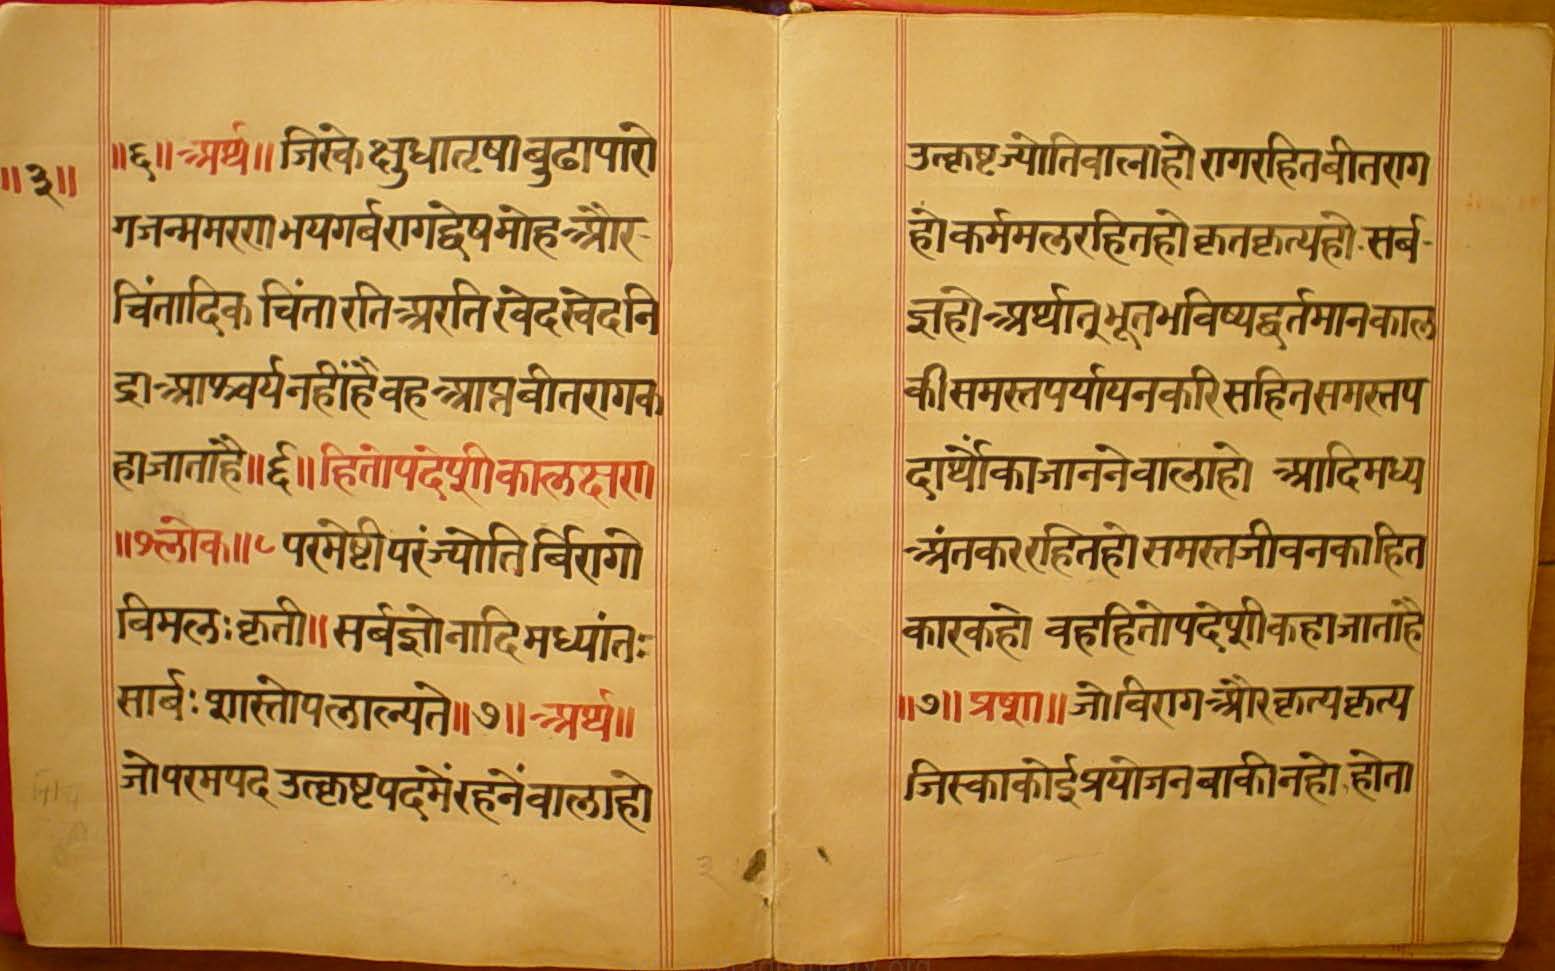 ॥३॥
॥६॥ अर्थ॥ जिस्के क्षुधा तृषा बुढापा रो
ग जन्म मरण भय गर्ब राग द्वेष मोह और-
चिंतादिक चिंता रति अरति स्वेद खेद नि
द्रा आश्चर्य नहीं है वह आप्त बीतराग क
हा जाता है॥६॥ हितोपदेशी का लक्षण
॥श्लोक॥ ८ परमेष्टी परंज्योति र्बिरागो
विमलः कृती॥ सर्बज्ञोनादिमध्यांतः
सार्बः शास्तोपलाल्यते॥७॥ अर्थ॥
जो परमपद उत्कृष्ट पदमें रहनें वाला हो
उत्कृष्ट ज्योतिवाला हो राग रहित बीतराग
हो कर्ममल रहित हो कृतकृत्य हो. सर्ब-
ज्ञ हो अर्थात् भूत भविष्यद्वर्तमान काल
की समस्त पर्यायन करि सहित समस्त प
दार्थों का जाननेवाला हो आदि मध्य
अंत कर रहित हो समस्त जीवन का हित
कारक हो वह हितोपदेशी कहा जाता है
॥७॥ प्रष्ण॥ जो विराग और कृत्य कृत्य
जिस्का कोई प्रयोजन बाकी न हो, होता